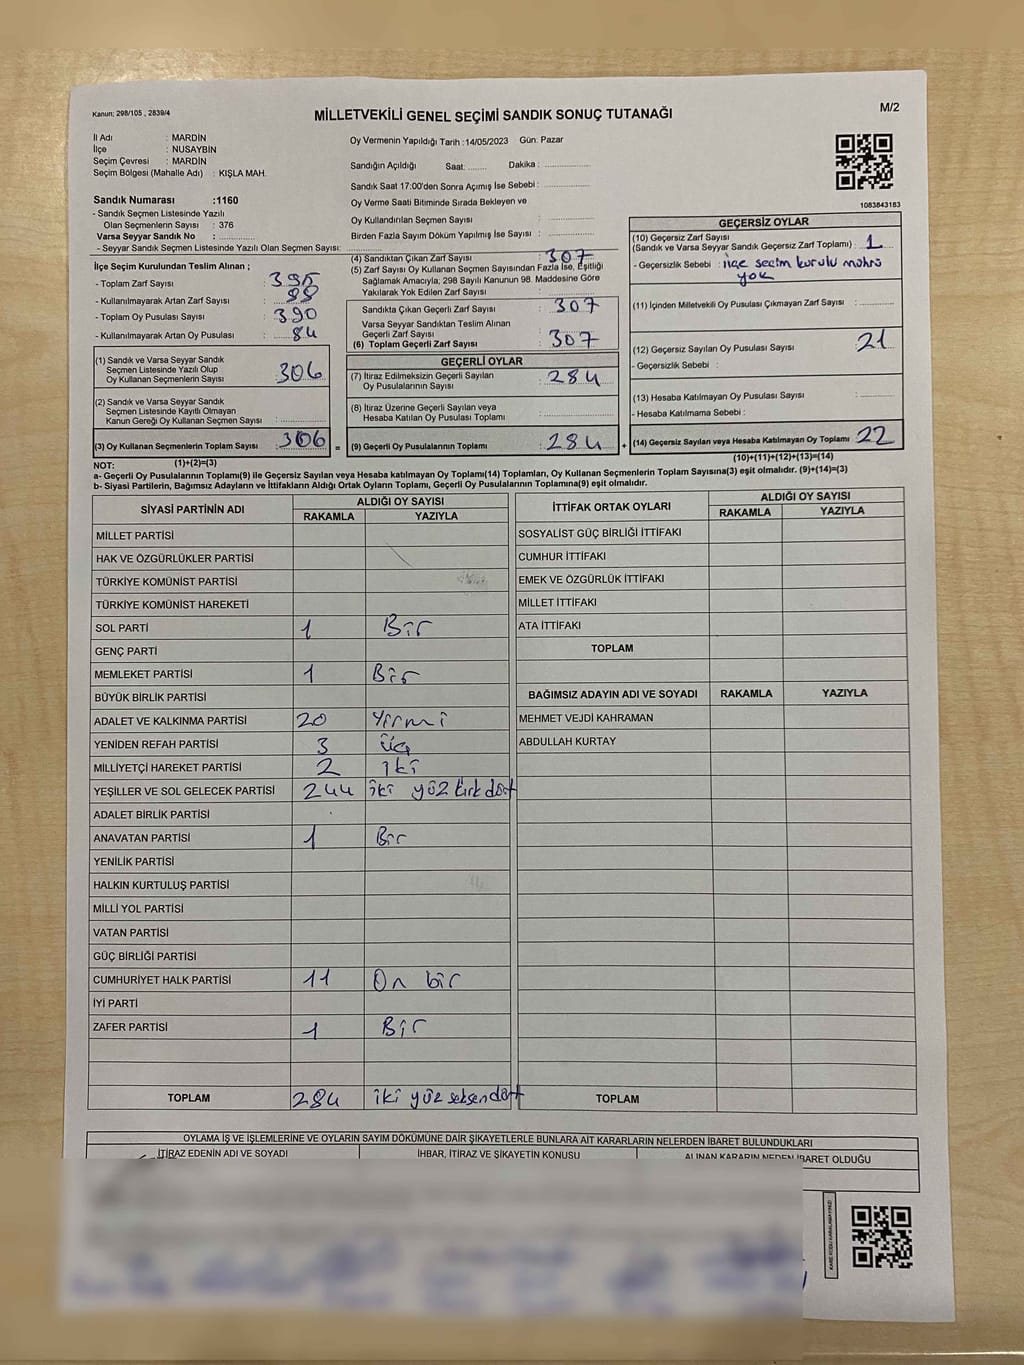 Kanun; 298/105 , 2839/4
MİLLETVEKİLİ GENEL SEÇİMİ SANDIK SONUÇ TUTANAĞI
M/2
İl Adı : MARDİN
İlçe : NUSAYBİN
Seçim Çevresi : MARDİN
Seçim Bölgesi (Mahalle Adı) : KIŞLA MAH.
Oy Vermenin Yapıldığı Tarih :14/05/2023 Gün: Pazar
Sandığın Açıldığı Saat: ........ Dakika : ................
Sandık Saat 17:00'den Sonra Açımış İse Sebebi : ................
Oy Verme Saati Bitiminde Sırada Bekleyen ve
Oy Kullandırılan Seçmen Sayısı : ................
Birden Fazla Sayım Döküm Yapılmış İse Sayısı : ................
1083843183
Sandık Numarası :1160
- Sandık Seçmen Listesinde Yazılı
Olan Seçmenlerin Sayısı : 376
Varsa Seyyar Sandık No : ................
- Seyyar Sandık Seçmen Listesinde Yazılı Olan Seçmen Sayısı: ................
İlçe Seçim Kurulundan Teslim Alınan ;
- Toplam Zarf Sayısı : 395
- Kullanılmayarak Artan Zarf Sayısı : 88
- Toplam Oy Pusulası Sayısı : 390
- Kullanılmayarak Artan Oy Pusulası : 84
(1) Sandık ve Varsa Seyyar Sandık
Seçmen Listesinde Yazılı Olup
Oy Kullanan Seçmenlerin Sayısı : 306
(2) Sandık ve Varsa Seyyar Sandık
Seçmen Listesinde Kayıtlı Olmayan
Kanun Gereği Oy Kullanan Seçmen Sayısı : ................
(3) Oy Kullanan Seçmenlerin Toplam Sayısı : 306 =
(1)+(2)=(3)
(4) Sandıktan Çıkan Zarf Sayısı : 307
(5) Zarf Sayısı Oy Kullanan Seçmen Sayısından Fazla İse, Eşitliği
Sağlamak Amacıyla; 298 Sayılı Kanunun 98. Maddesine Göre
Yakılarak Yok Edilen Zarf Sayısı : ................
Sandıkta Çıkan Geçerli Zarf Sayısı : 307
Varsa Seyyar Sandıktan Teslim Alınan
Geçerli Zarf Sayısı : ................
(6) Toplam Geçerli Zarf Sayısı : 307
GEÇERLİ OYLAR
(7) İtiraz Edilmeksizin Geçerli Sayılan
Oy Pusulalarının Sayısı : 284
(8) İtiraz Üzerine Geçerli Sayılan veya
Hesaba Katılan Oy Pusulası Toplamı : ................
(9) Geçerli Oy Pusulalarının Toplamı : 284 +
GEÇERSİZ OYLAR
(10) Geçersiz Zarf Sayısı
(Sandık ve Varsa Seyyar Sandık Geçersiz Zarf Toplamı) : 1
- Geçersizlik Sebebi : ilçe seçim kurulu mührü
yok
(11) İçinden Milletvekili Oy Pusulası Çıkmayan Zarf Sayısı : ................
(12) Geçersiz Sayılan Oy Pusulası Sayısı : 21
- Geçersizlik Sebebi :
(13) Hesaba Katılmayan Oy Pusulası Sayısı : ................
- Hesaba Katılmama Sebebi :
(14) Geçersiz Sayılan veya Hesaba Katılmayan Oy Toplamı : 22
(10)+(11)+(12)+(13)=(14)
NOT:
a- Geçerli Oy Pusulalarının Toplamı(9) ile Geçersiz Sayılan veya Hesaba katılmayan Oy Toplamı(14) Toplamları, Oy Kullanan Seçmenlerin Toplam Sayısına(3) eşit olmalıdır. (9)+(14)=(3)
b- Siyasi Partilerin, Bağımsız Adayların ve İttifakların Aldığı Ortak Oyların Toplamı, Geçerli Oy Pusulalarının Toplamına(9) eşit olmalıdır.
SİYASİ PARTİNİN ADI ALDIĞI OY SAYISI
RAKAMLA YAZIYLA
MİLLET PARTİSİ
HAK VE ÖZGÜRLÜKLER PARTİSİ
TÜRKİYE KOMÜNİST PARTİSİ
TÜRKİYE KOMÜNİST HAREKETİ
SOL PARTİ 1 Bir
GENÇ PARTİ
MEMLEKET PARTİSİ 1 Bir
BÜYÜK BİRLİK PARTİSİ
ADALET VE KALKINMA PARTİSİ 20 Yirmi
YENİDEN REFAH PARTİSİ 3 üç
MİLLİYETÇİ HAREKET PARTİSİ 2 iki
YEŞİLLER VE SOL GELECEK PARTİSİ 244 iki yüz kırk dört
ADALET BİRLİK PARTİSİ
ANAVATAN PARTİSİ 1 Bir
YENİLİK PARTİSİ
HALKIN KURTULUŞ PARTİSİ
MİLLİ YOL PARTİSİ
VATAN PARTİSİ
GÜÇ BİRLİĞİ PARTİSİ
CUMHURİYET HALK PARTİSİ 11 On bir
İYİ PARTİ
ZAFER PARTİSİ 1 Bir
TOPLAM 284 iki yüz seksen dört
İTTİFAK ORTAK OYLARI ALDIĞI OY SAYISI
RAKAMLA YAZIYLA
SOSYALİST GÜÇ BİRLİĞİ İTTİFAKI
CUMHUR İTTİFAKI
EMEK VE ÖZGÜRLÜK İTTİFAKI
MİLLET İTTİFAKI
ATA İTTİFAKI
TOPLAM
BAĞIMSIZ ADAYIN ADI VE SOYADI RAKAMLA YAZIYLA
MEHMET VEJDİ KAHRAMAN
ABDULLAH KURTAY
TOPLAM
OYLAMA İŞ VE İŞLEMLERİNE VE OYLARIN SAYIM DÖKÜMÜNE DAİR ŞİKAYETLERLE BUNLARA AİT KARARLARIN NELERDEN İBARET BULUNDUKLARI
İTİRAZ EDENİN ADI VE SOYADI İHBAR, İTİRAZ VE ŞİKAYETİN KONUSU ALINAN KARARIN NEDEN İBARET OLDUĞU